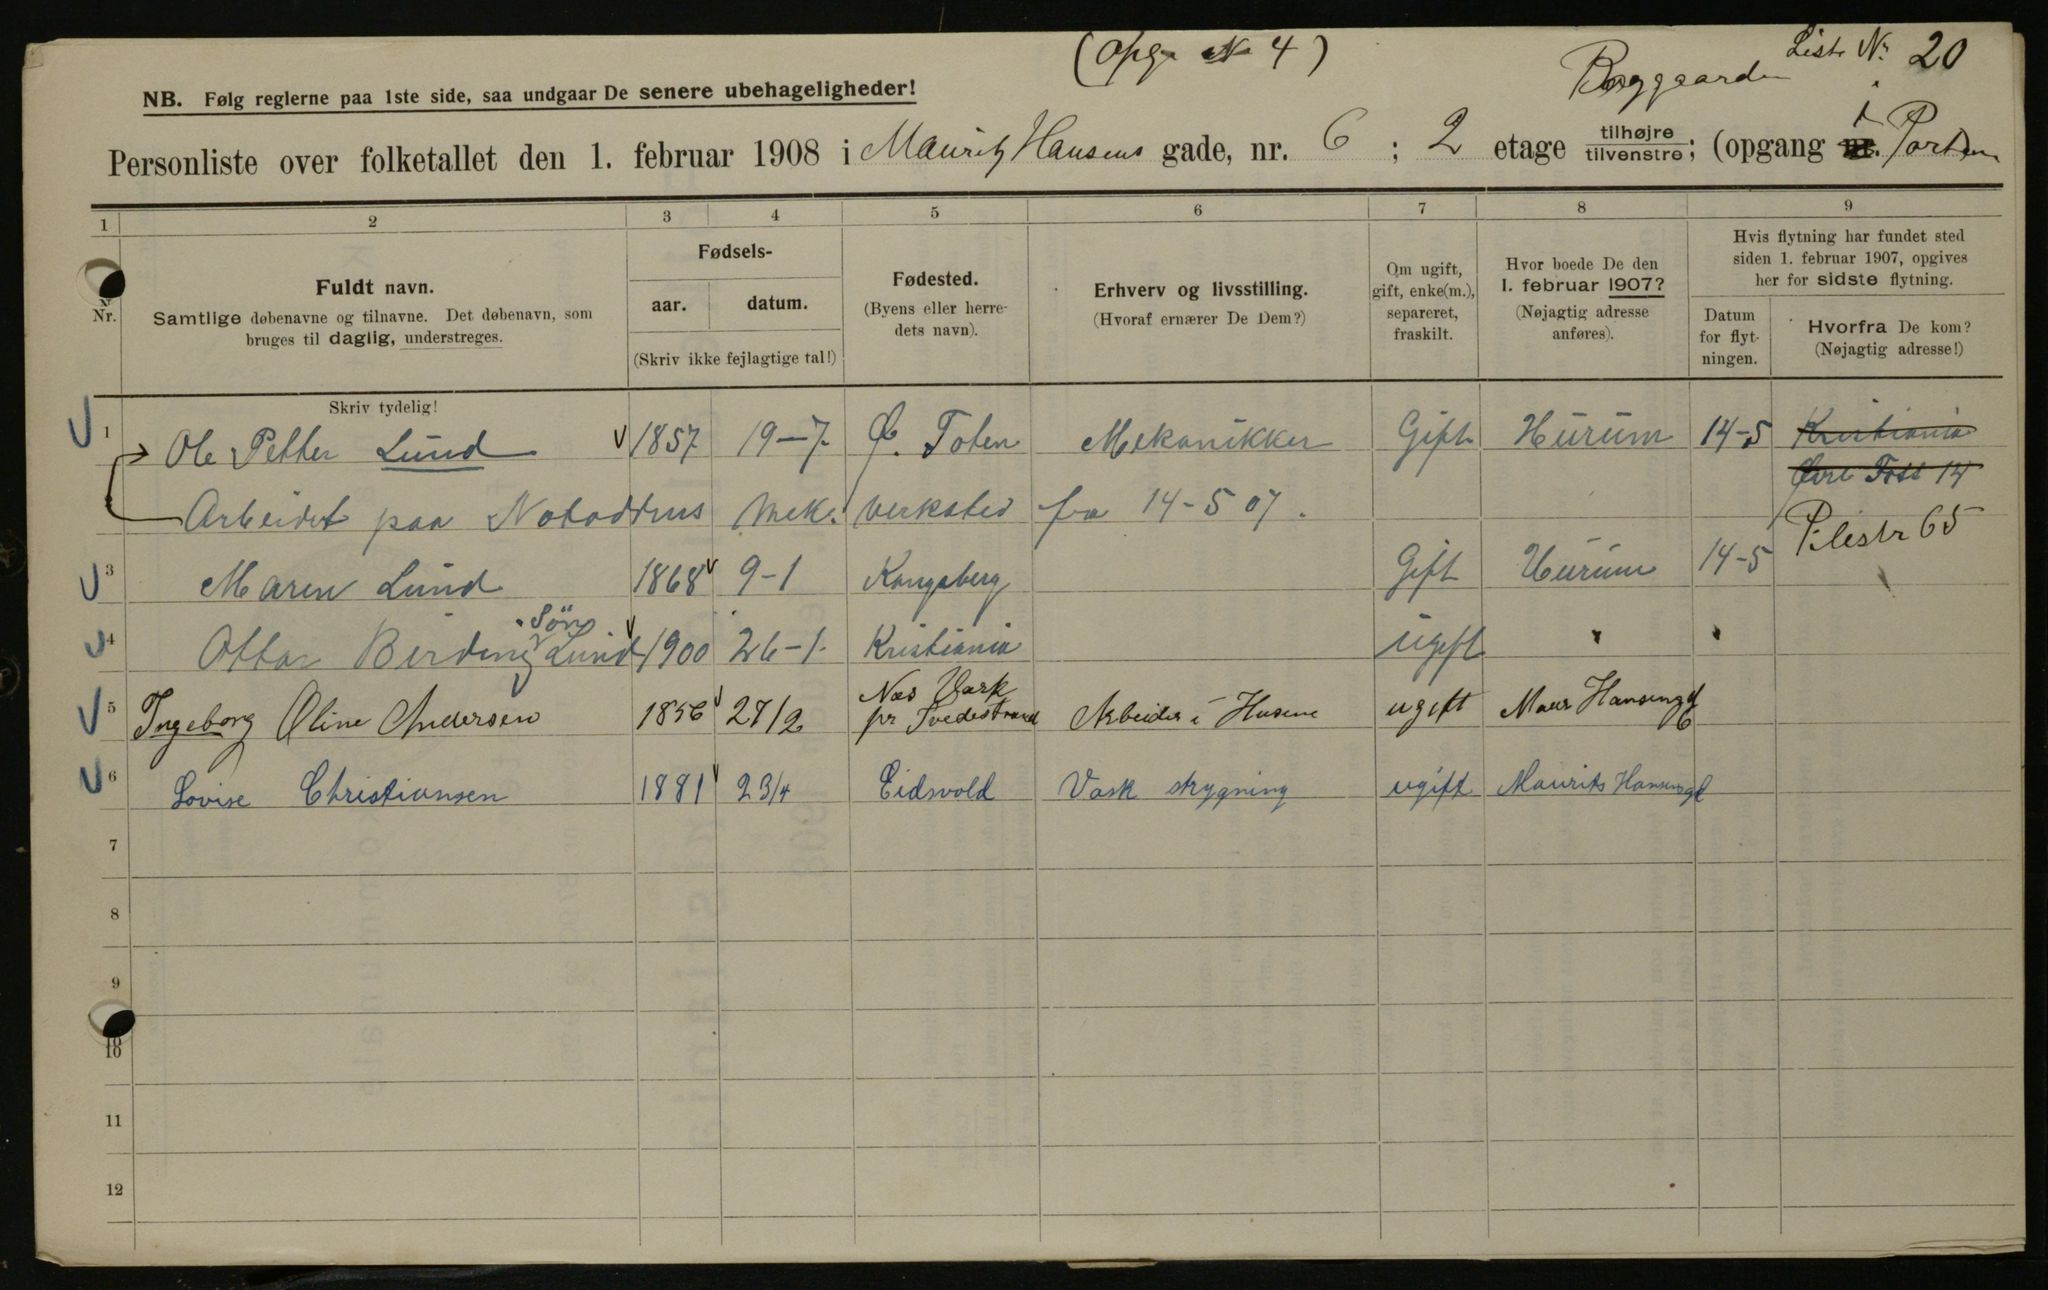 (Opg. No 4)
Liste Nr. 20
Baggaarden
NB. Følg reglerne paa 1ste side, saa undgaar De senere ubehageligheder!
Personliste over folketallet den 1. februar 1908 i Mauritz Hansens gade, nr. 6 ; 2 etage tilhøjre tilvenstre; (opgang nr. i Porten
1 2 3 4 5 6 7 8 9
Nr.
Fuldt navn.
Samtlige døbenavne og tilnavne. Det døbenavn, som
bruges til daglig, understreges.
Skriv tydelig!
Fødsels-
aar. datum.
(Skriv ikke fejlagtige tal!)
Fødested.
(Byens eller herre-
dets navn).
Erhverv og livsstilling.
(Hvoraf ernærer De Dem?)
Om ugift,
gift, enke(m.),
separeret,
fraskilt.
Hvor boede De den
1. februar 1907?
(Nøjagtig adresse
anføres).
Hvis flytning har fundet sted
siden 1. februar 1907, opgives
her for sidste flytning.
Datum
for flyt-
ningen.
Hvorfra De kom?
(Nøjagtig adresse!)
1 Ole Petter Lund 1857 19-7 Ø. Toten Mekanikker Gift Hurum 14-5 Kristiania
Øvre Foss 14
Arbeidet paa Notoddens Mek. verksted fra 14-5 07.
Pilestr 65
3 Maren Lund 1868 9-1 Kongsberg Gift Hurum 14-5
Søn
4 Ottar Birding Lund 1900 26-1 Kristiania ugift " "
5 Ingeborg Oline Andersen 1856 27/2 Næs Værk
pr Tvedestrand Arbeider i Husene ugift Maur Hansensg 6
6 Lovise Christiansen 1881 23/4 Eidsvold Vask strygning ugift Maurits Hansensg 6
7
8
9
10
11
12